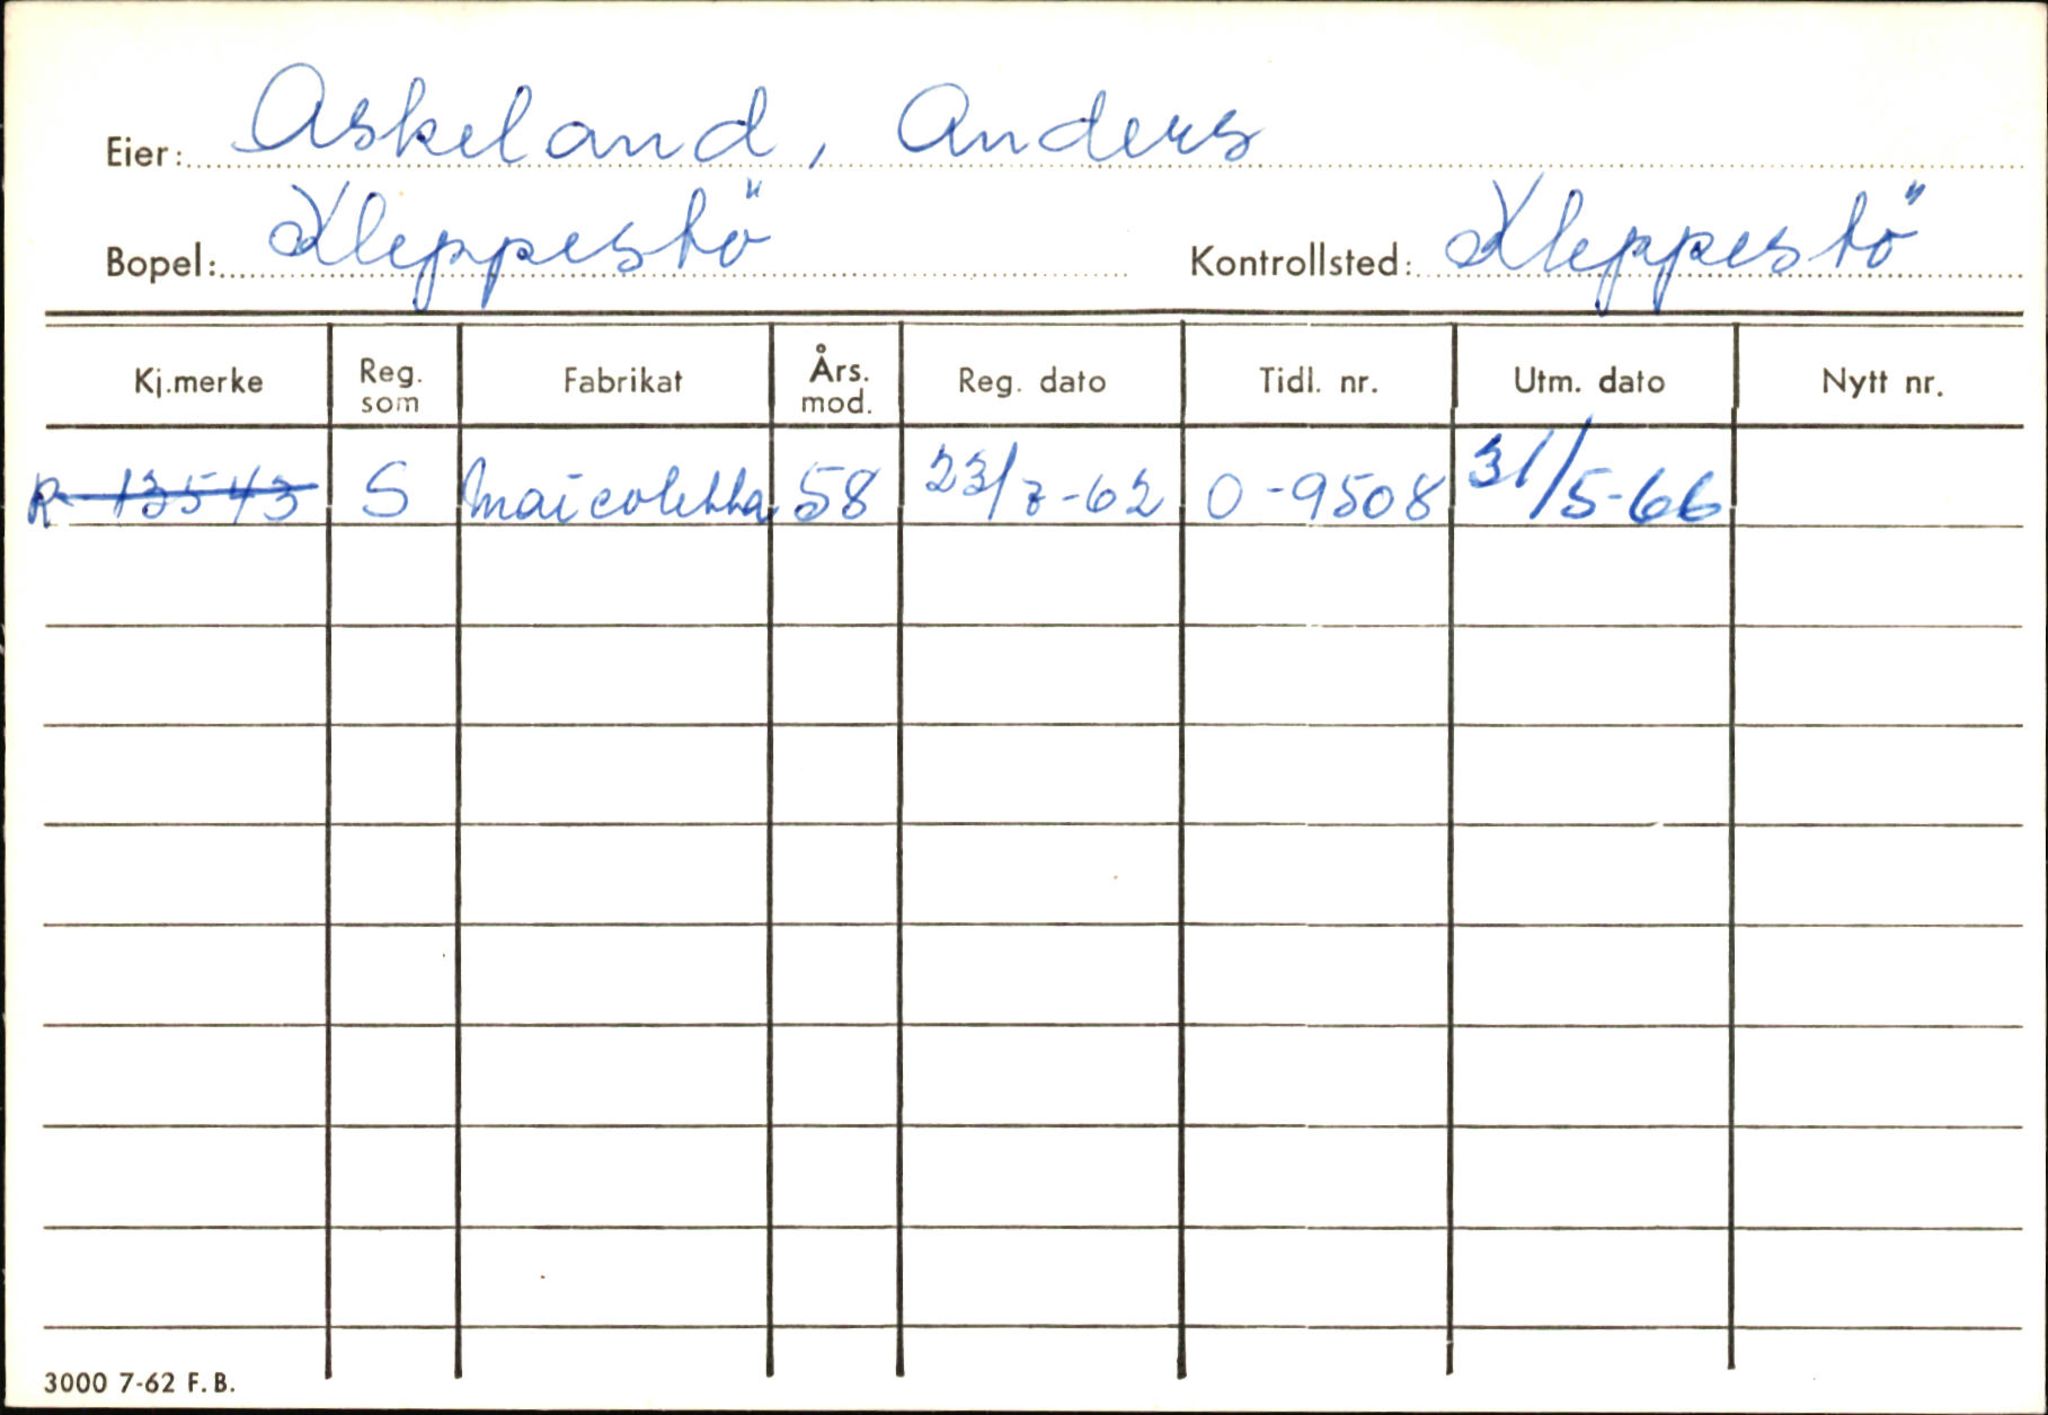 Eier: Askeland, Anders
Bopel: Kleppestö Kontrollsted: Kleppestö
Kj.merke Reg. som Fabrikat Års. mod. Reg. dato Tidl. nr. Utm. dato Nytt nr.
R-13543 S Maicoletta 58 23/7-62 O-9508 31/5-66
3000 7-62 F.B.